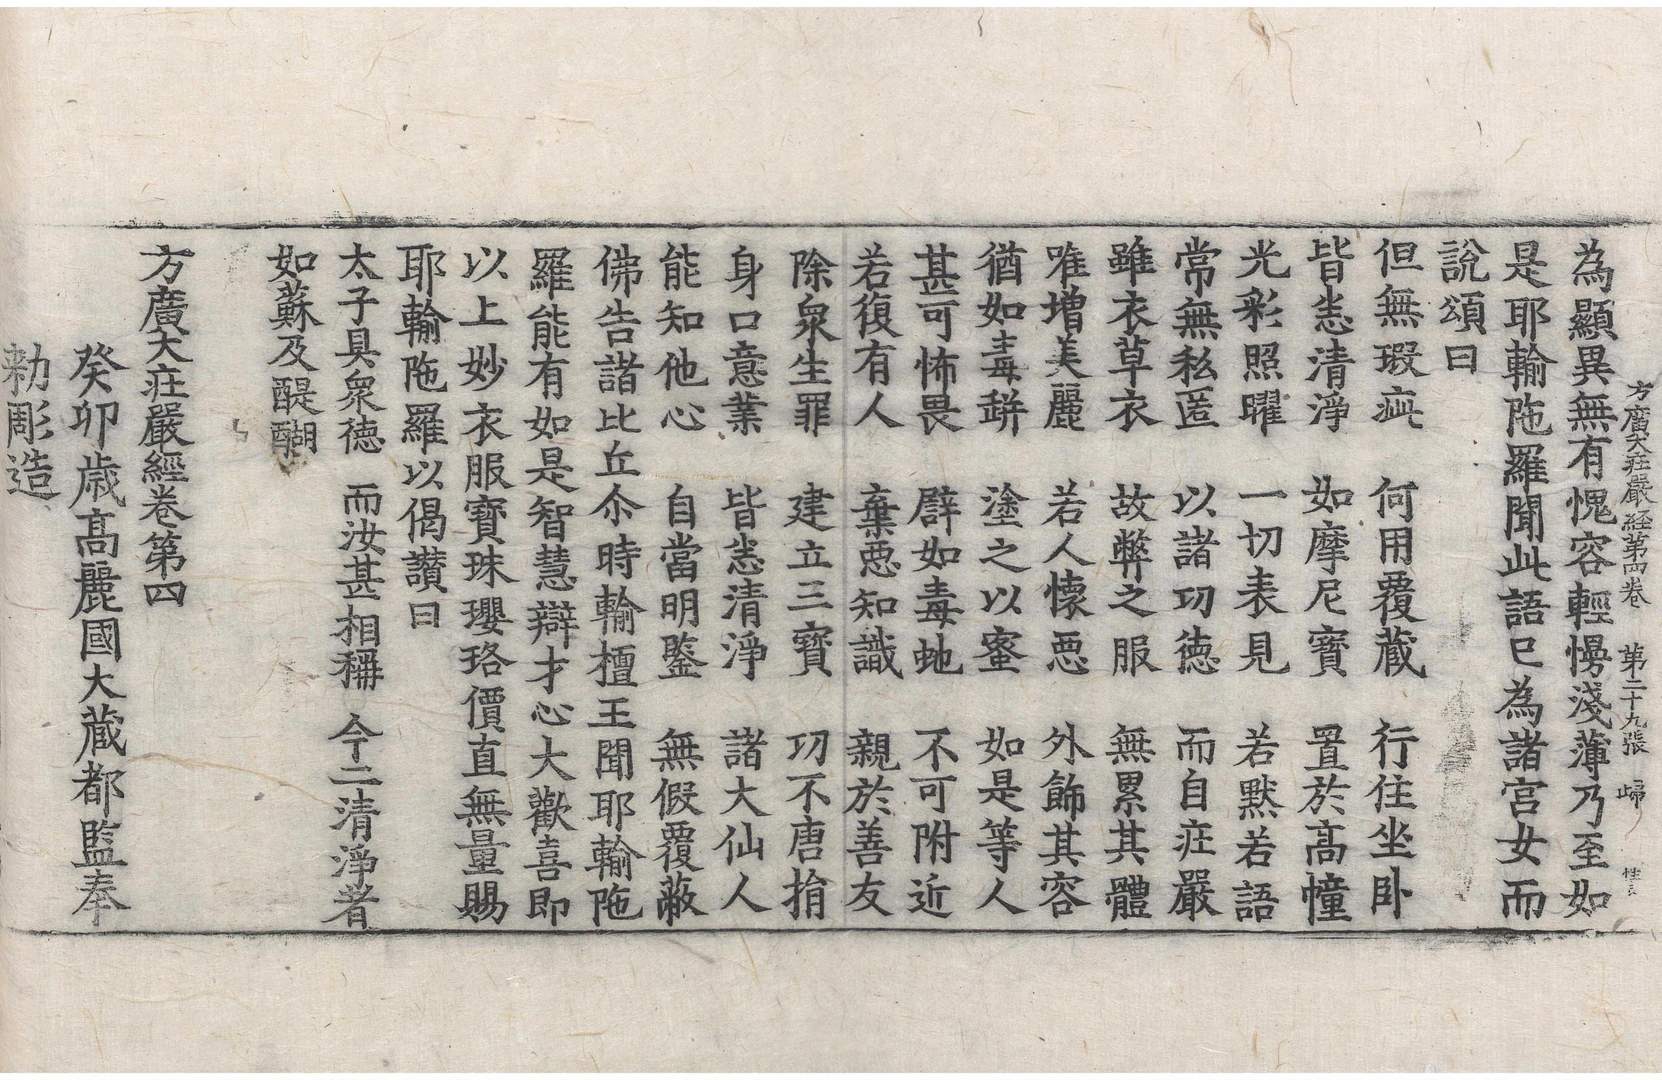 方廣大莊嚴經第四卷 第二十九張 歸
為顯異無有愧容輕慢淺薄乃至如
是耶輸陁羅聞此語已為諸宮女而
說頌曰
但無瑕疵 何用覆藏 行住坐卧
皆悉清淨 如摩尼寶 置於高幢
光彩照曜 一切表見 若默若語
常無私匿 以諸功德 而自莊嚴
雖衣草衣 故弊之服 無累其體
唯增美麗 若人懷惡 外飾其容
猶如毒缾 塗之以蜜 如是等人
甚可怖畏 辟如毒虵 不可附近
若復有人 棄惡知識 親於善友
除衆生罪 建立三寶 功不唐捐
身口意業 皆悉清淨 諸大仙人
能知他心 自當明鑒 無假覆蔽
佛告諸比丘尒時輸檀王聞耶輸陁
羅能有如是智慧辯才心大歡喜即
以上妙衣服寶珠瓔珞價直無量賜
耶輸陁羅以偈讚曰
太子具衆德 而汝甚相稱 今二清淨者
如蘇及醍醐
方廣大莊嚴經卷第四
癸卯歲高麗國大藏都監奉
勅彫造